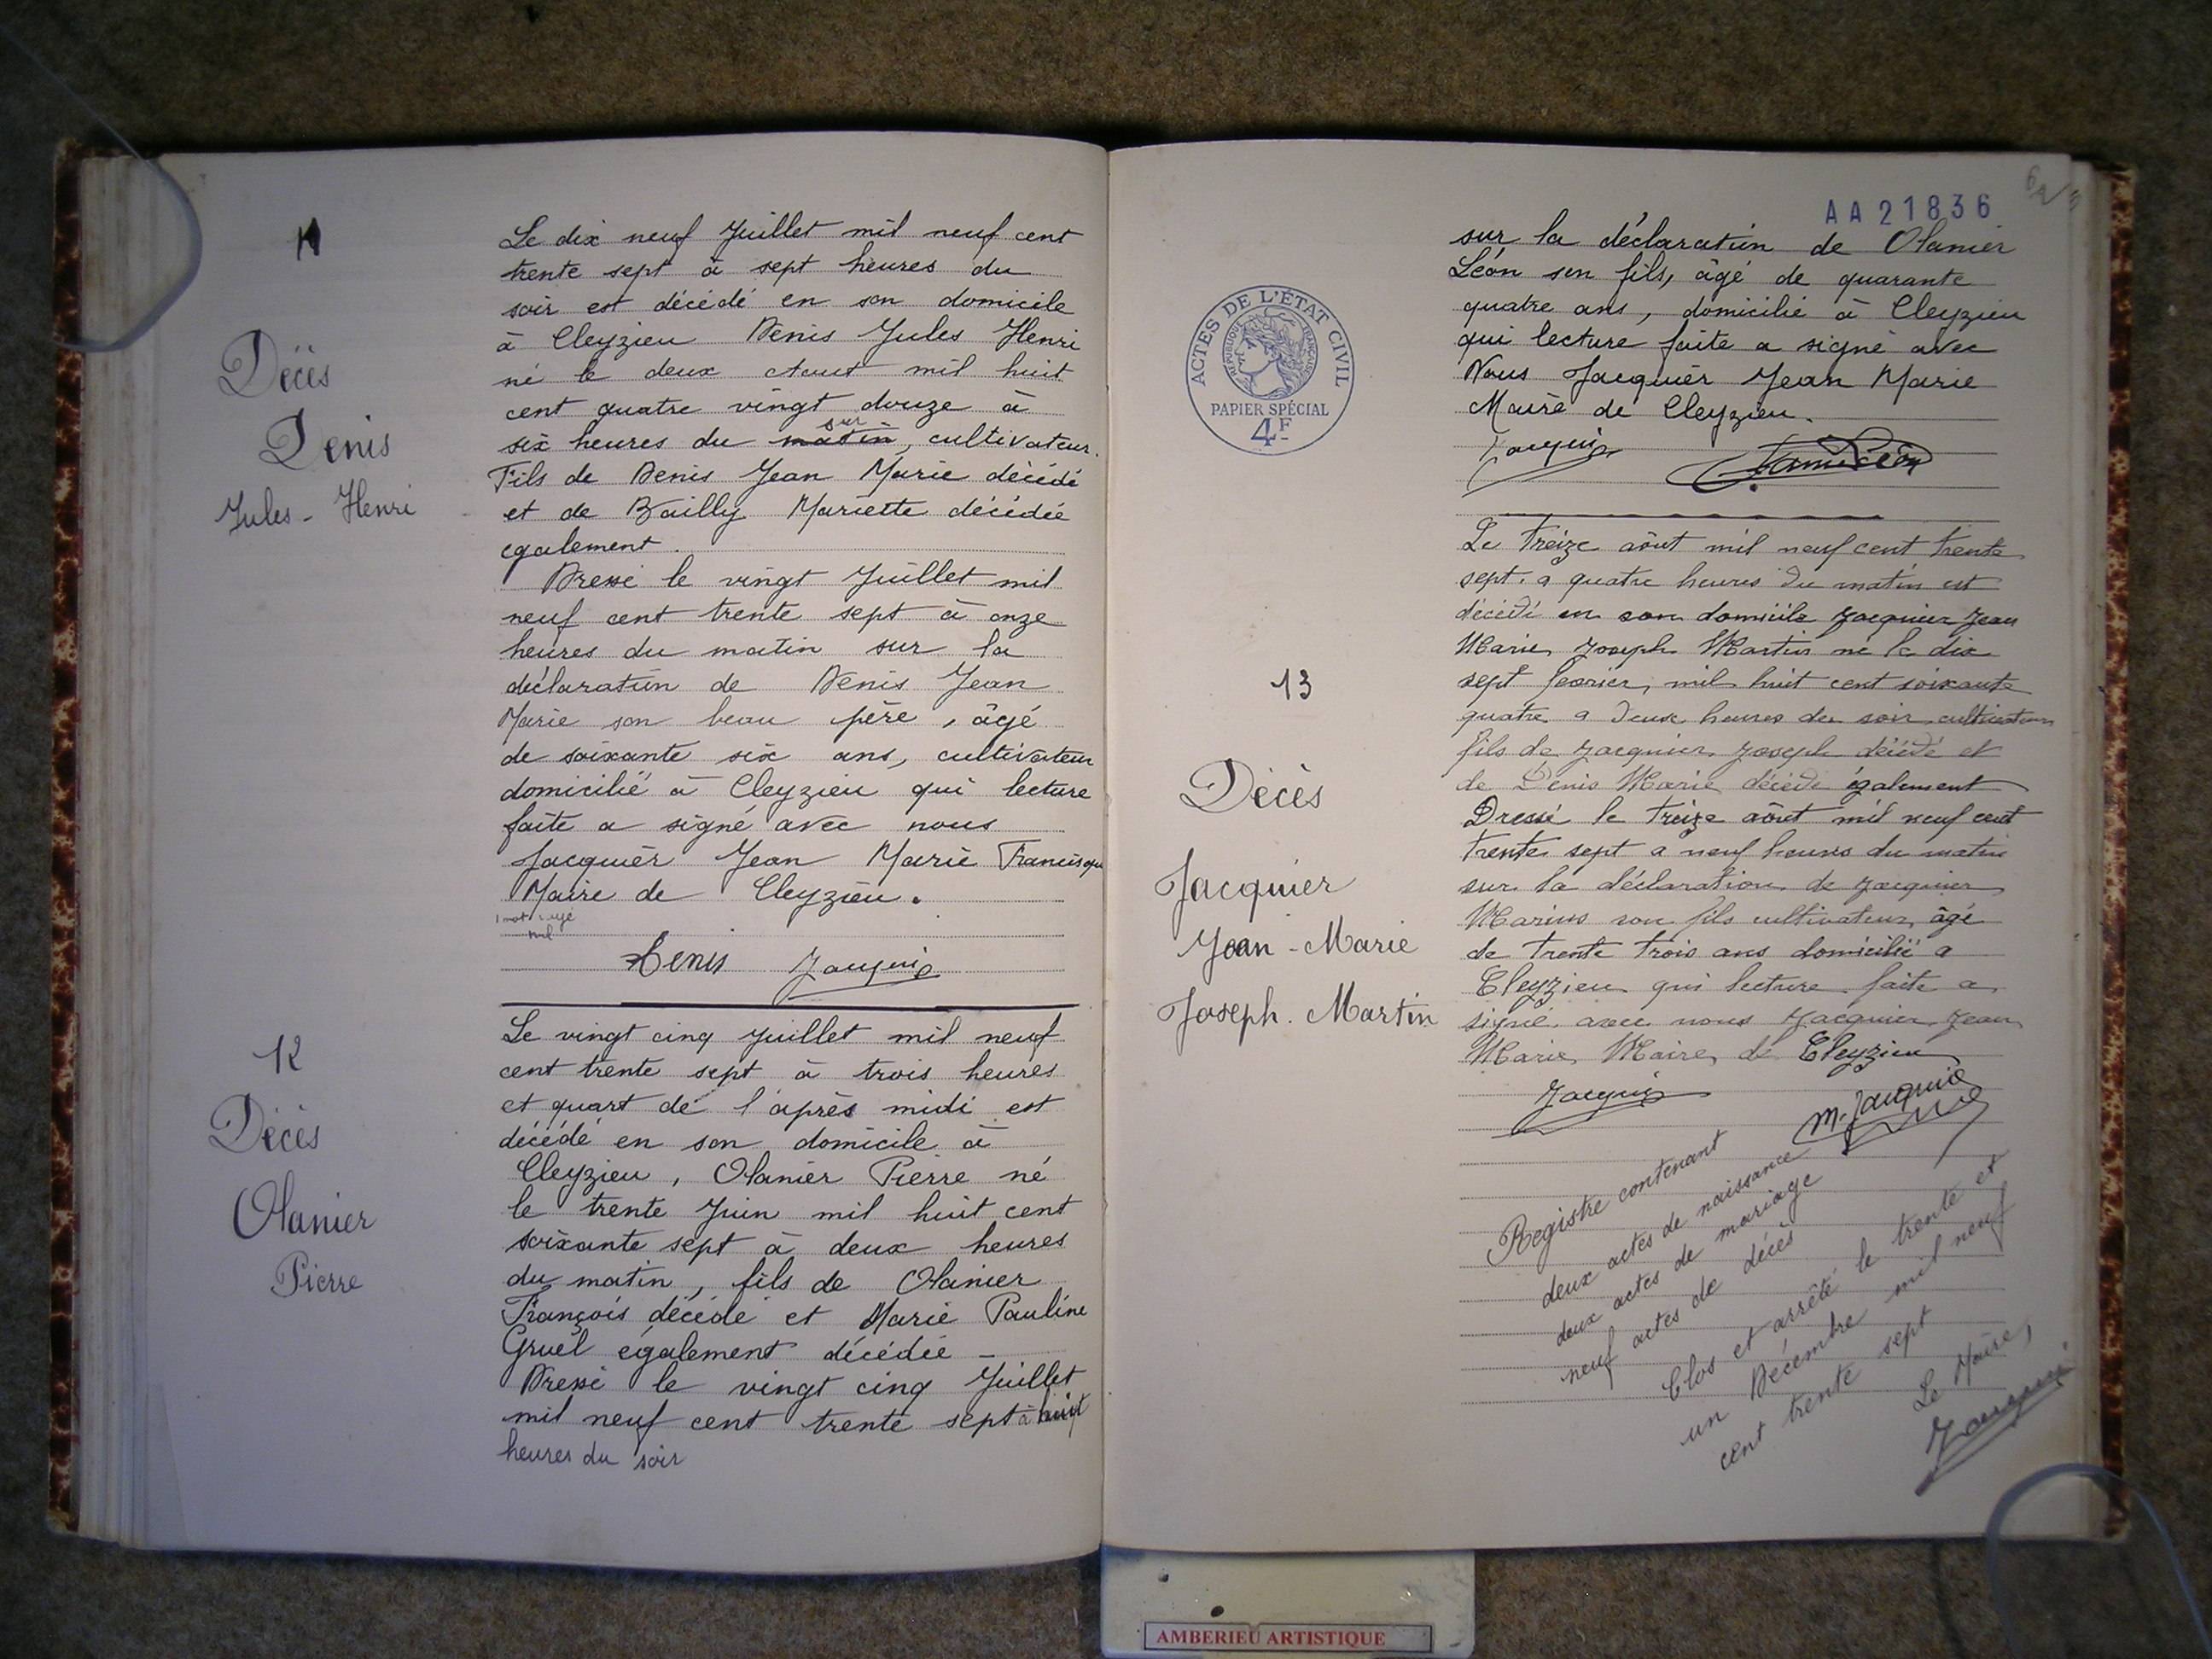 11
Décès
Denis
Jules - Henri
Le dix neuf Juillet mil neuf cent
trente sept à sept heures du
soir est décédé en son domicile
à Cleyzieu Denis Jules Henri
né le deux Aout mil huit
cent quatre vingt douze à
six heures du matin, cultivateur.
Fils de Denis Jean Marie décédé
et de Bailly Mariette décédée
egalement.
Dressé le vingt Juillet mil
neuf cent trente sept à onze
heures du matin sur la
déclaration de Denis Jean
Marie son beau père, âgé
de soixante six ans, cultivateur
domicilié à Cleyzieu qui lecture
faite a signé avec nous
Jacquier Jean Marie Francisque
Maire de Cleyzieu.
1 mot
nul
Denis Jacquier
12
Décès
Olanier
Pierre
Le vingt cinq Juillet mil neuf
cent trente sept à trois heures
et quart de l'après midi est
décédé en son domicile à
Cleyzieu, Olanier Pierre né
le trente Juin mil huit cent
soixante sept à deux heures
du matin, fils de Olanier
François décédé et Marie Pauline
Gruel également décédée -
Dressé le vingt cinq Juillet
mil neuf cent trente sept à huit
heures du soir
AA21836
ACTES DE L'ÉTAT CIVIL
RÉPUBLIQUE FRANÇAISE
PAPIER SPÉCIAL
4F
sur la déclaration de Olanier
Léon son fils, âgé de quarante
quatre ans, domicilié à Cleyzieu
qui lecture faite a signé avec
Nous Jacquier Jean Marie
Maire de Cleyzieu.
Jacquier Olanier Léon
13
Décès
Jacquier
Jean - Marie
Joseph. Martin
Le treize aôut mil neuf cent trente
sept. a quatre heures du matin est
décédé en son domicile Jacquier Jean
Marie Joseph Martin né le dix
sept fevrier, mil huit cent soixante
quatre a deux heures du soir, cultivateur
fils de Jacquier Joseph décédé et
de Denis Marie décédé également
Dressé le treize aôut mil neuf cent
trente sept a neuf heures du matin
sur la déclaration de Jacquier
Marius son fils cultivateur, âgé
de trente trois ans domicilié a
Cleyzieu qui lecture faite a
signé avec nous Jacquier Jean
Marie Maire de Cleyzieu
Jacquier M. Jacquier
Registre contenant
deux actes de naissance
deux actes de mariage
neuf actes de décès
Clos et arrêté le trente et
un Décembre mil neuf
cent trente sept
Le Maire,
Jacquier
AMBERIEU ARTISTIQUE